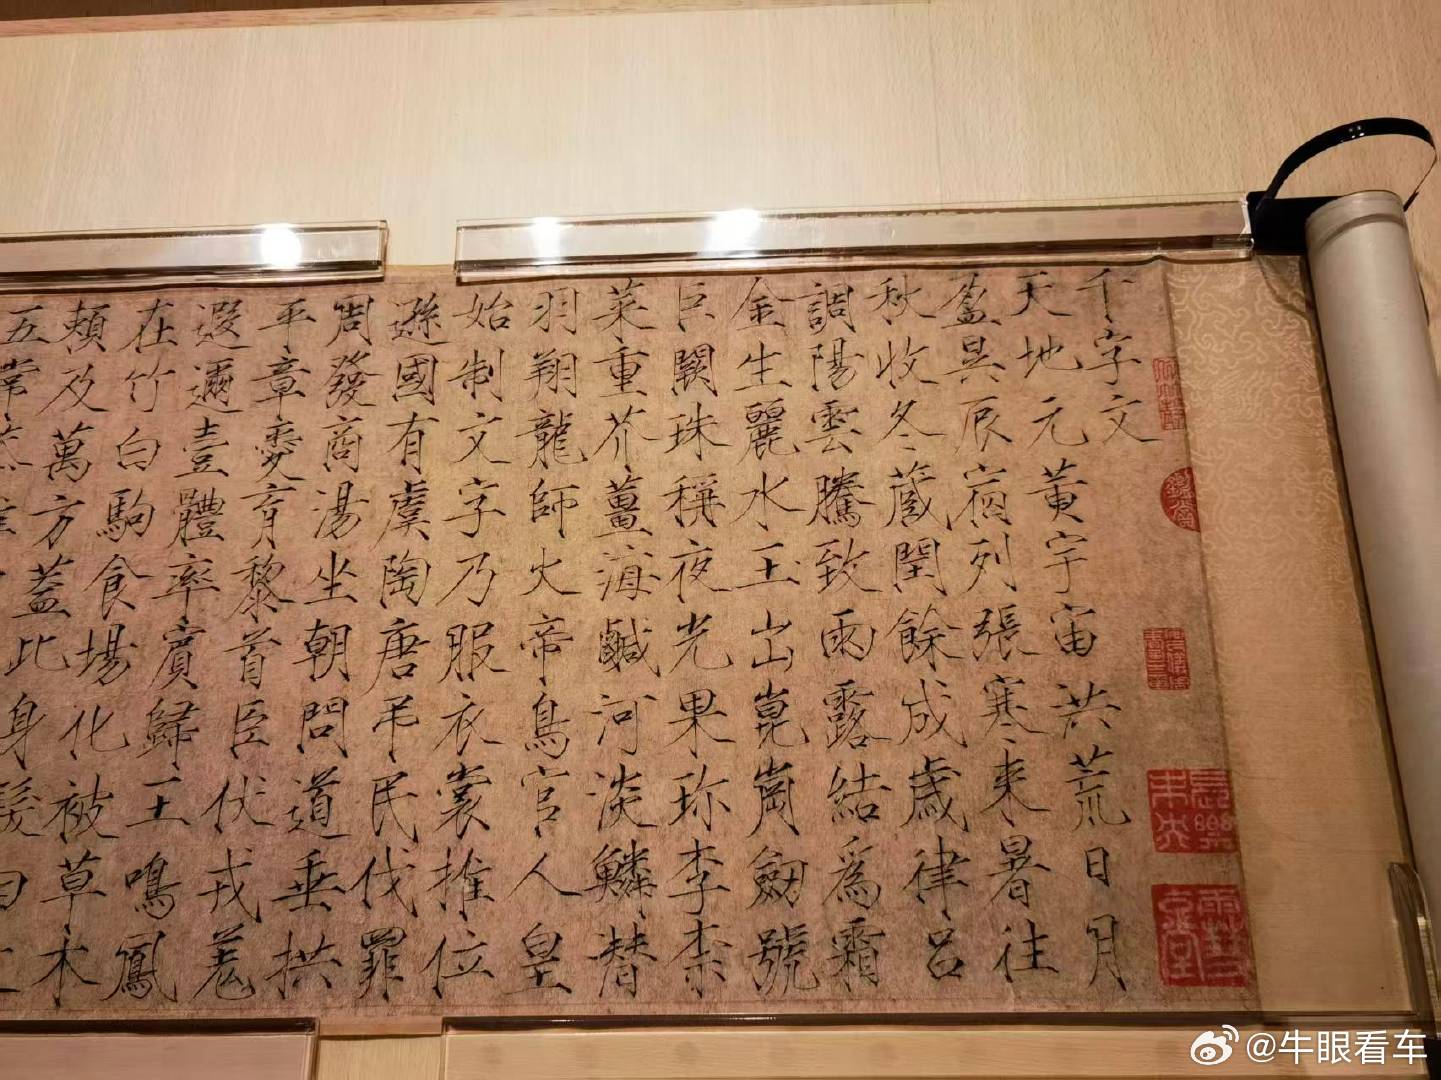 千字文
天地元黄宇宙洪荒日月
盈昃辰宿列張寒来暑往
秋收冬蔵閏餘成歳律呂
調陽雲騰致雨露結為霜
金生麗水玉出崑崗劒號
巨闕珠稱夜光果珎李柰
菜重芥薑海鹹河淡鱗潛
羽翔龍師火帝鳥官人皇
始制文字乃服衣裳推位
遜國有虞陶唐弔民伐罪
周發商湯坐朝問道垂拱
平章愛育黎首臣伏戎羌
遐邇壹體率賓歸王鳴鳳
在竹白駒食場化被草木
頼及萬方蓋此身髮
五常
@牛眼看车